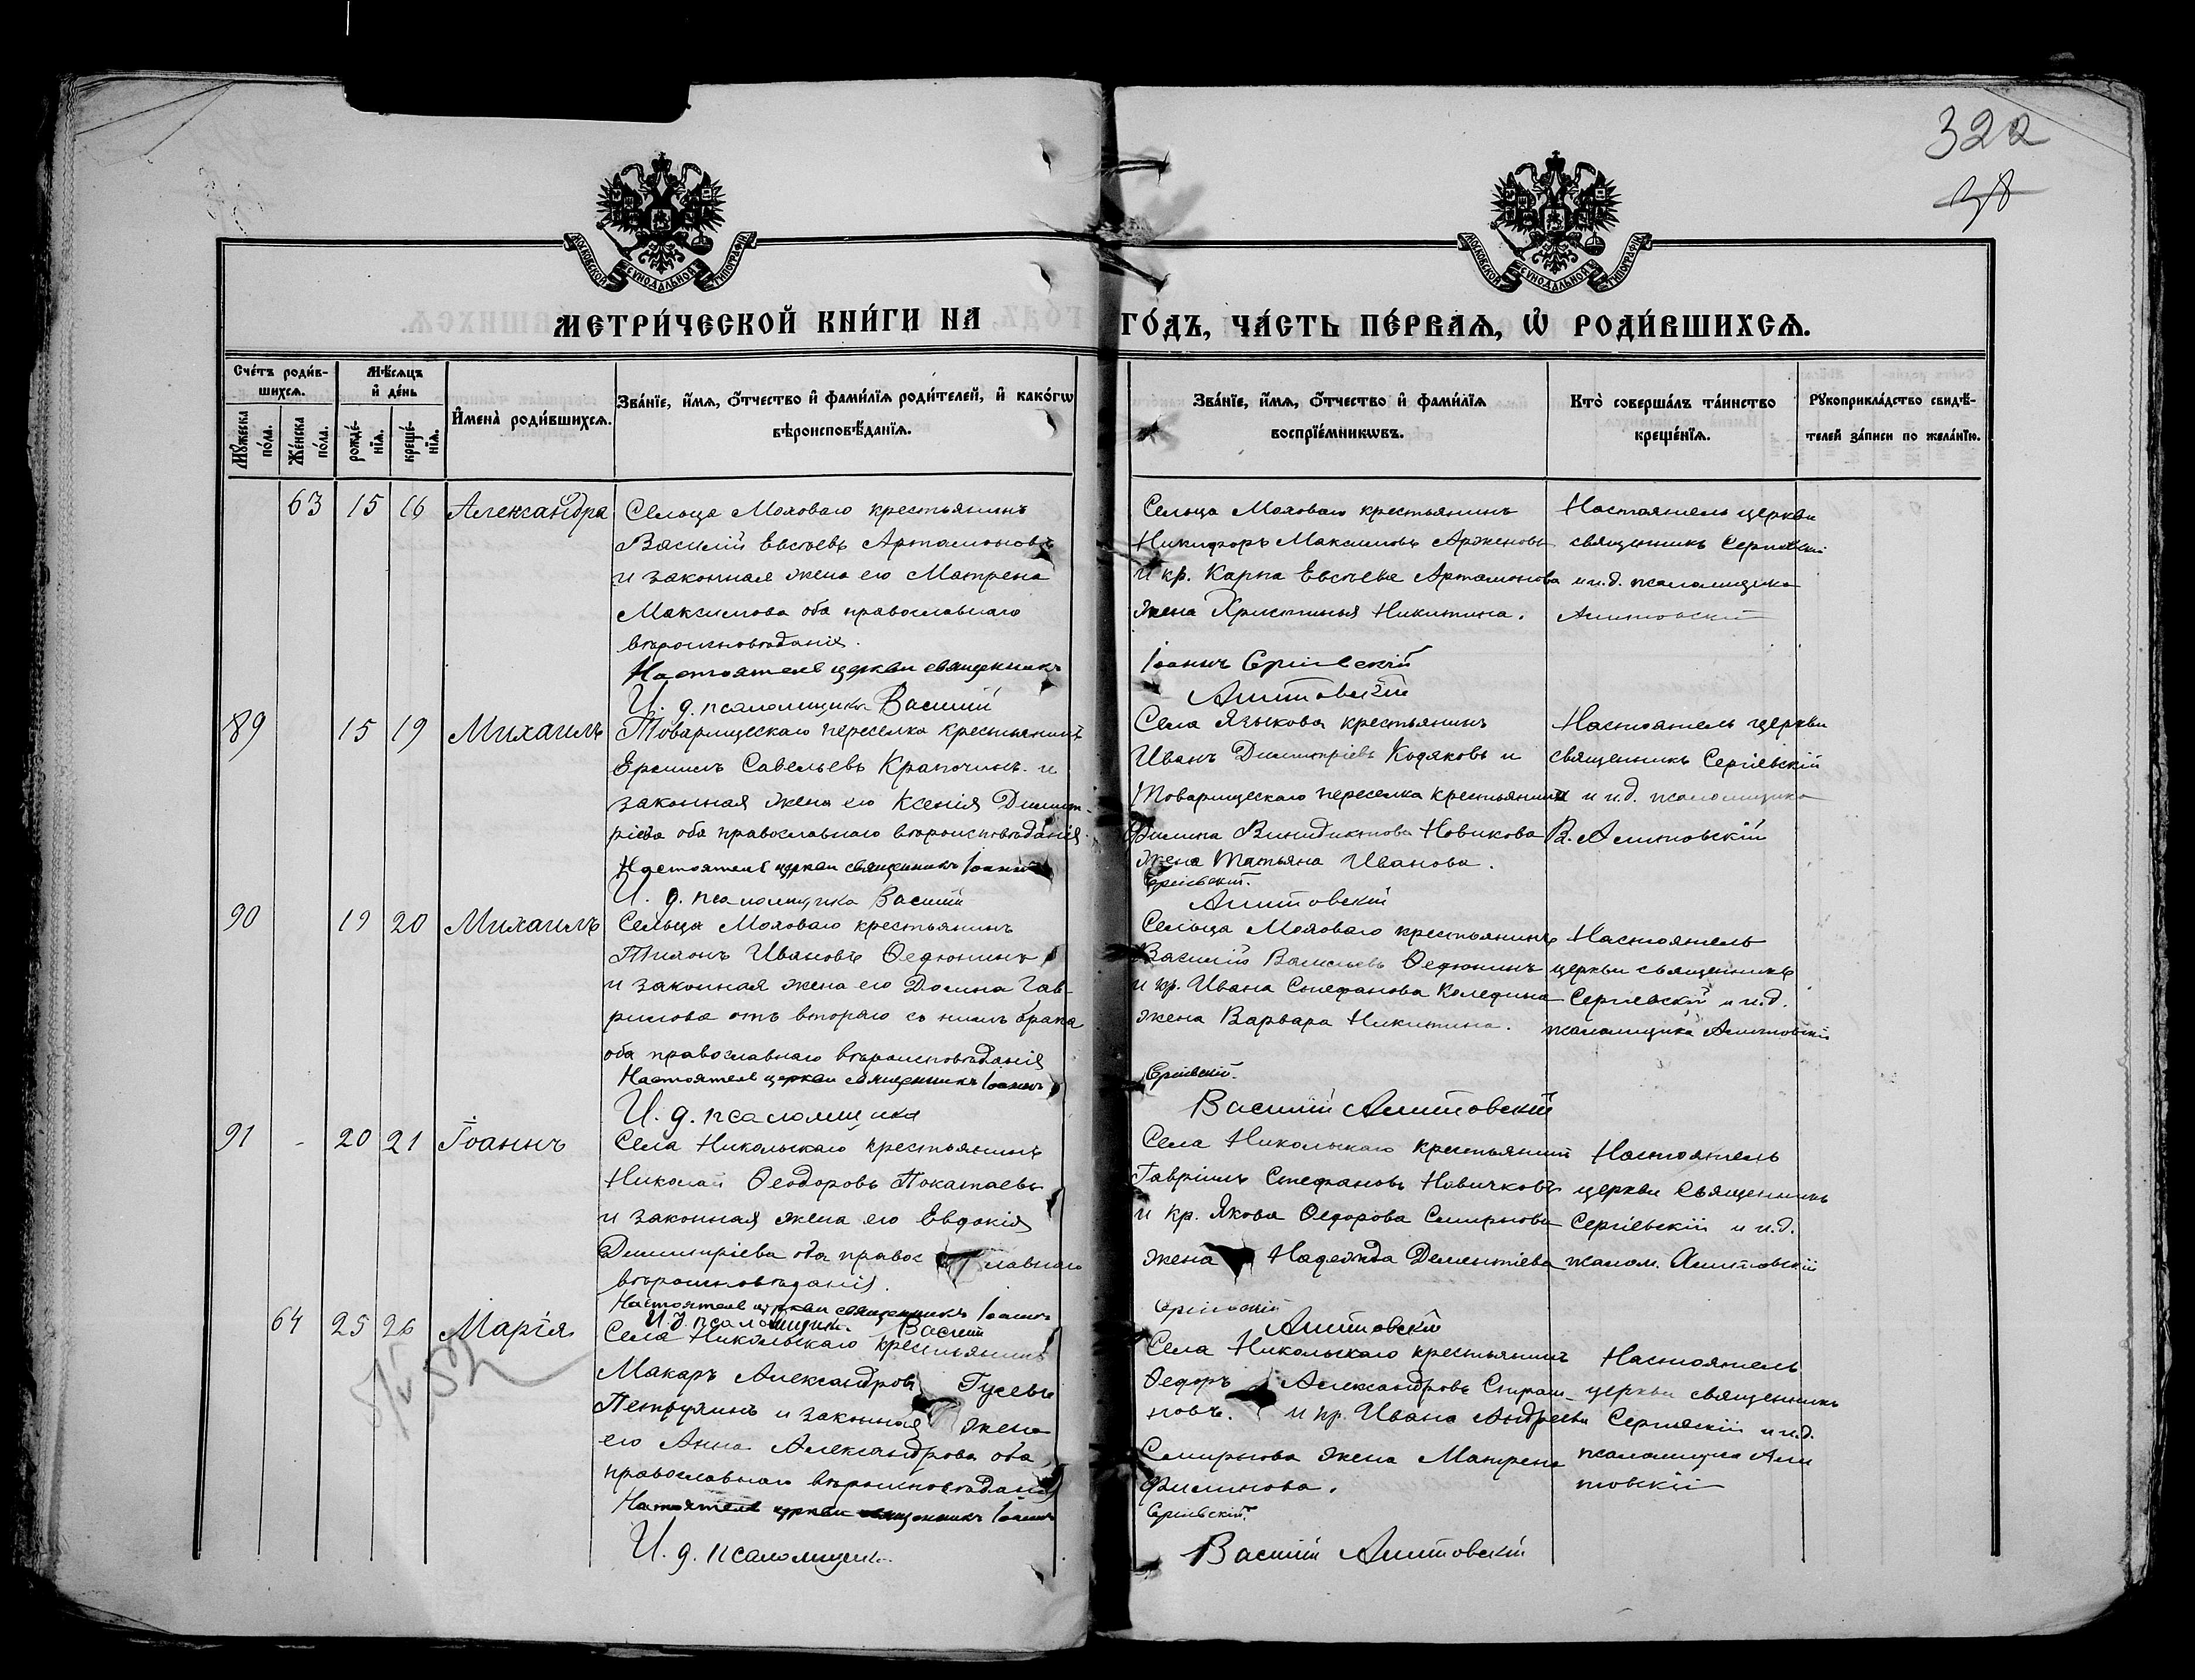 322
38
МОСКОВСКОЙ СѴНОДАЛЬНОЙ ТИПОГРАФІИ
МОСКОВСКОЙ СѴНОДАЛЬНОЙ ТИПОГРАФІИ
МЕТРИ́ЧЕСКОЙ КНИ́ГИ НА ГО́ДЪ, ЧА́СТЬ ПЕ́РВАѦ, Ѡ҆ РОДИ́ВШИХСѦ.
Сче́тъ роди́в-
шихсѧ.
Мꙋ́жеска по́ла.
Же́нска по́ла.
Мѣ́сѧцъ
и҆ де́нь
рожде́-
нїѧ.
креще́-
нїѧ.
И҆мена̀ роди́вшихсѧ.
Зва́нїе, и҆́мѧ, ѻ҆́тчество и҆ фами́лїѧ роди́телей, и҆ како́гѡ
вѣроисповѣ́данїѧ.
Зва́нїе, и҆́мѧ, ѻ҆́тчество и҆ фами́лїѧ
воспрїе́мникѡвъ.
Кто̀ соверша́лъ та́инство
креще́нїѧ.
Рꙋкоприкла́дство свидѣ́-
телей за́писи по жела́нїю.
63 15 16 Александра
Сельца Моховаго крестьянинъ
Василій Евстьевъ Артамоновъ
и законная жена его Матрена
Максимова оба православнаго
вѣроисповѣданія.
Настоятель церкви священникъ
И. д. псаломщика Василій
Сельца Моховаго крестьянинъ
Никифоръ Максимовъ Арженовъ
и кр. Карпа Евстьева Артамонова
жена Христинья Никитина.
Іоаннъ Сергіевскій
Алитовскій
Настоятель церкви
священникъ Сергіевскій
и и.д. псаломщика
Алитовскій
89 15 19 Михаилъ
Товарищескаго переселка крестьянинъ
Ермилъ Савельевъ Крапочинъ и
законная жена его Ксенія Димит-
ріева оба православнаго вѣроисповѣданія.
Настоятель церкви священникъ Іоаннъ
И. д. псаломщика Василій
Села Языкова крестьянинъ
Иванъ Димитріевъ Кодяковъ и
Товарищескаго переселка крестьянина
Филипа Винидиктова Новикова
жена Татьяна Иванова.
Сергіевскій.
Алитовскій
Настоятель церкви
священникъ Сергіевскій
и и.д. псаломщика
В. Алитовскій
90 19 20 Михаилъ
Сельца Моховаго крестьянинъ
Тихонъ Ивановъ Ѳедюнинъ
и законная жена его Домна Гав-
рилова отъ втораго съ нимъ брака
оба православнаго вѣроисповѣданія
Настоятель церкви священникъ Іоаннъ
И. д. псаломщика
Сельца Моховаго крестьянинъ
Василій Васильевъ Ѳедюнинъ
и кр. Ивана Стефанова
жена Варвара Никитина.
Сергіевскій.
Василій Алитовскій
Настоятель
церкви священникъ
Сергіевскій и и.д.
псаломщика Алитовскій
91 - 20 21 Іоаннъ
Села Никольскаго крестьянинъ
Николай Ѳеодоровъ Покатаевъ
и законная жена его Евдокія
Димитріева оба православнаго
вѣроисповѣданія.
Настоятель церкви священникъ Іоаннъ
И. д. псаломщик. Василій
Села Никольскаго крестьянинъ
Гавріилъ Стефановъ Новичковъ
и кр. Якова Ѳедорова Смирнова
жена Надежда Дементіева
Сергіевскій
Алитовскій
Настоятель
церкви Священникъ
Сергіевскій и и.д.
псалом. Алитовскій
64 25 26 Марія
Села Никольскаго крестьянинъ
Макаръ Александровъ Гусевъ
Петрухинъ и законная жена
его Анна Александрова оба
православнаго вѣроисповѣданія
Настоятель церкви священникъ Іоаннъ
И. д. псаломщик.
Села Никольскаго крестьянинъ
Ѳедоръ Александровъ
и кр. Ивана Андреева
Смирнова жена Матрена
Филипова.
Сергіевскій.
Василій Алитовскій
Настоятель
церкви священникъ
Сергіевскій и и.д.
псаломщика Али
товскій